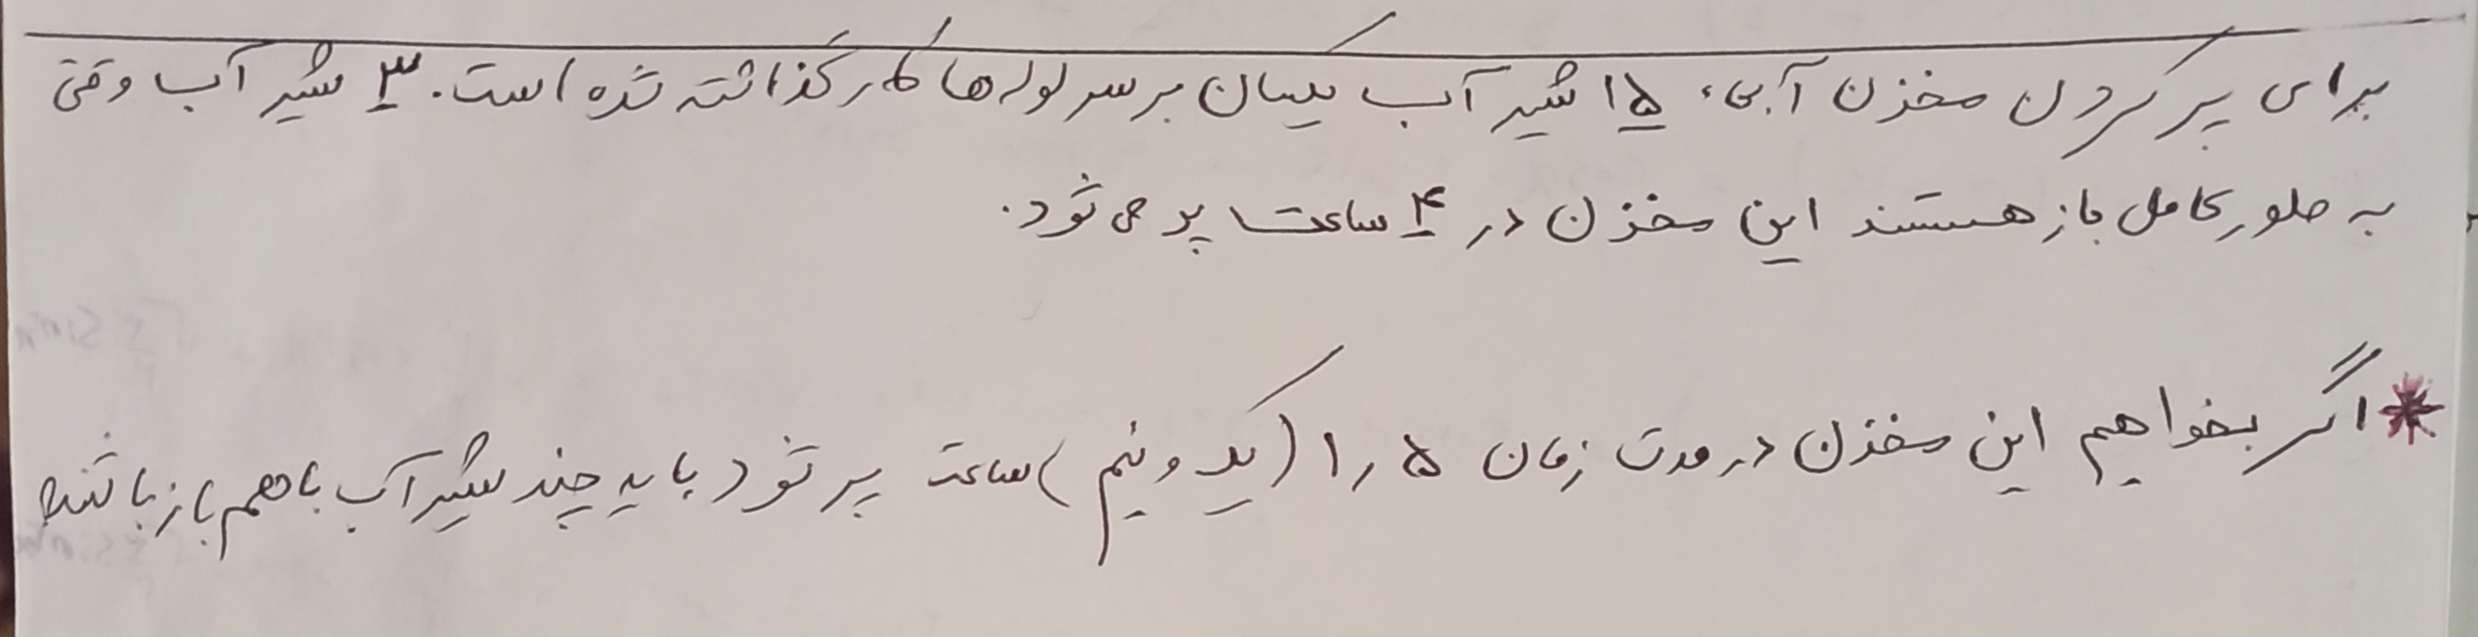 برای پر کردن مخزن آبی، ۱۵ شیر آب یکسان بر سر لوله‌ها کار گذاشته شده است. ۳ شیر آب وقتی
به طور کامل باز هستند این مخزن در ۴ ساعت پر می‌شود.
* اگر بخواهیم این مخزن در مدت زمان ۱٫۵ (یک و نیم) ساعت پر شود باید چند شیر آب با هم باز باشند